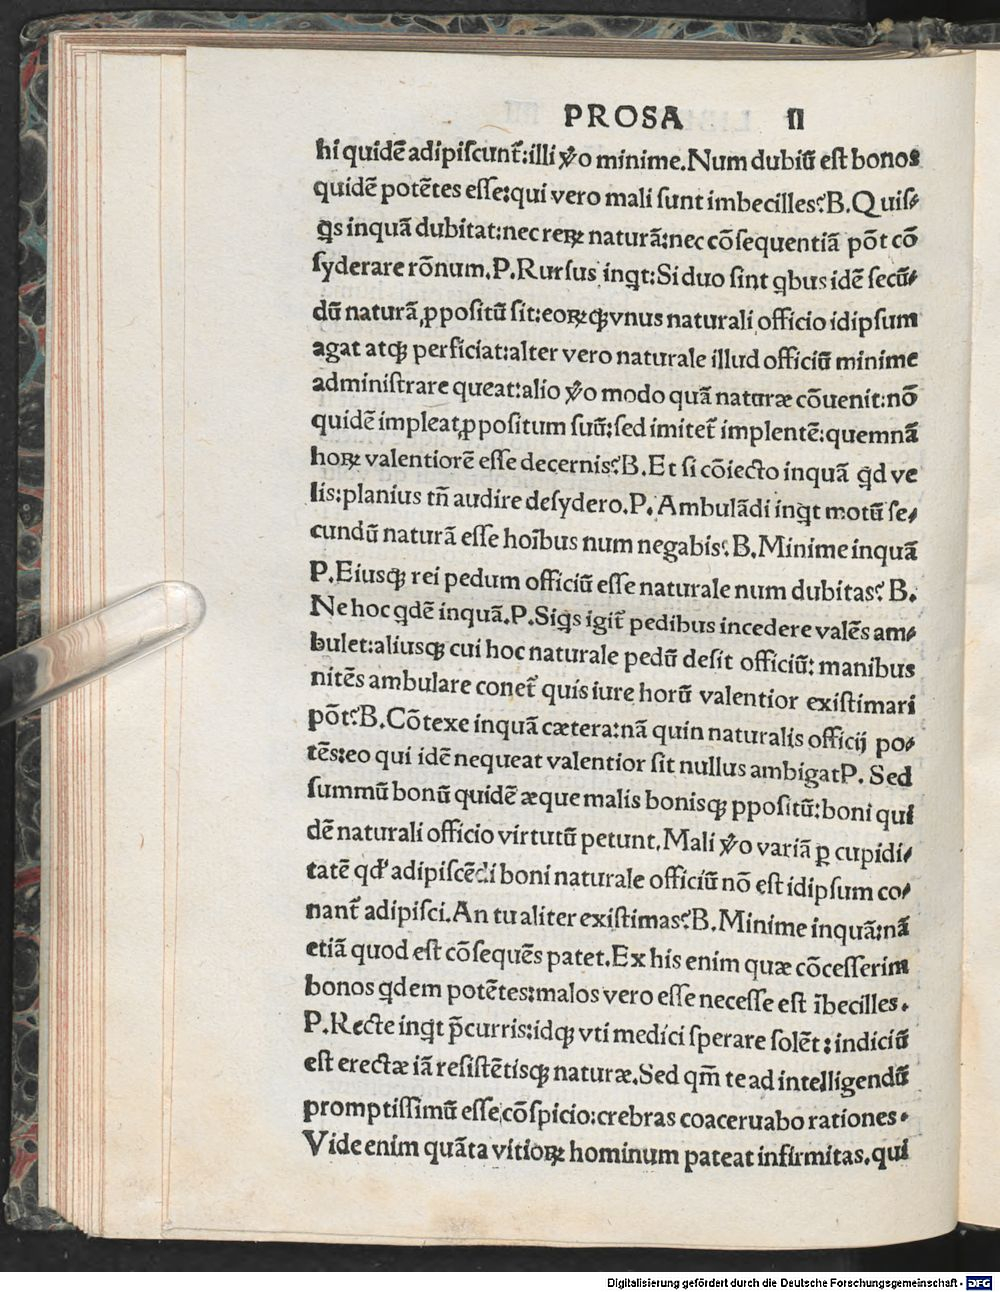 PROSA II
hi quidē adipiſcunt᷑:illi ꝟo minime.Num dubiū eſt bonos
quidē potētes eſſe:qui vero mali ſunt imbecilles?B.Quiſ⸗
ꝗs inquā dubitat:nec reꝝ naturā:nec cōſequentiā pōt cō
ſyderare rōnum.P.Rurſus inꝗt:Si duo ſint ꝗbus idē ſecū⸗
dū naturā ꝓpoſitū ſit:eoꝝꝙ vnus naturali officio idipſum
agat atꝙ perficiat:alter vero naturale illud officiū minime
adminiſtrare queat:alio ꝟo modo quā naturæ cōuenit:nō
quidē impleat ꝓpoſitum ſuū:ſed imitet᷑ implentē:quemnā
hoꝝ valentiorē eſſe decernis?B.Et ſi cōiecto inquā ꝗd ve
lis:planius tñ audire deſydero.P.Ambulādi inꝗt motū ſe⸗
cundū naturā eſſe hoībus num negabis?B.Minime inquā
P.Eiusꝙ rei pedum officiū eſſe naturale num dubitas?B.
Ne hoc ꝗdē inquā.P.Siꝗs igit᷑ pedibus incedere valēs am⸗
bulet:aliusꝙ cui hoc naturale pedū deſit officiū: manibus
nitēs ambulare conet᷑ quis iure horū valentior exiſtimari
pōt?B.Cōtexe inquā cætera:nā quin naturalis officij po⸗
tēs:eo qui idē nequeat valentior ſit nullus ambigatP. Sed
ſummū bonū quidē æque malis bonisꝙ ꝓpoſitū:boni qui
dē naturali officio virtutū petunt.Mali ꝟo variā ꝑ cupidi⸗
tatē qdʼ adipiſcēdi boni naturale officiū nō eſt idipſum co⸗
nant᷑ adipiſci.An tu aliter exiſtimas?B.Minime inquā:nā
etiā quod eſt cōſequēs patet.Ex his enim quæ cōceſſerim
bonos ꝗdem potētes:malos vero eſſe neceſſe eſt ībecilles.
P.Recte inꝗt p̄curris:idꝙ vti medici ſperare ſolēt: indiciū
eſt erectæ iā reſiſtētisꝙ naturæ.Sed qm̄ te ad intelligendū
promptiſſimū eſſe cōſpicio:crebras coaceruabo rationes.
Vide enim quāta vitioꝝ hominum pateat infirmitas.qui
Digitalisierung gefördert durch die Deutsche Forschungsgemeinschaft - DFG